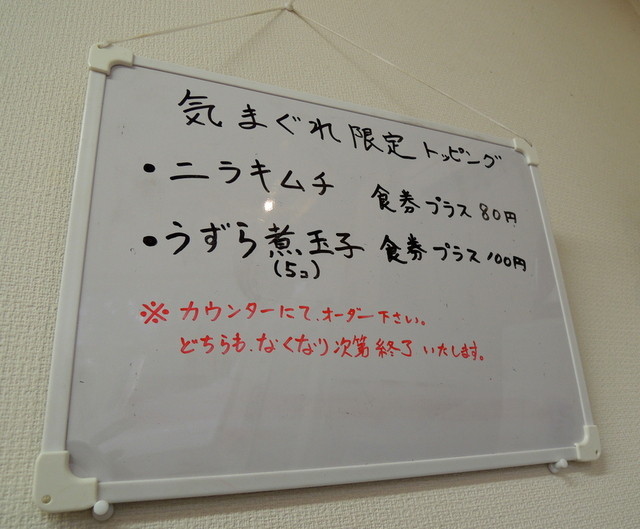 気まぐれ限定トッピング
・ニラキムチ 食券プラス80円
・うずら煮玉子 食券プラス100円
(5コ)
※カウンターにて、オーダー下さい。
どちらも、なくなり次第終了いたします。